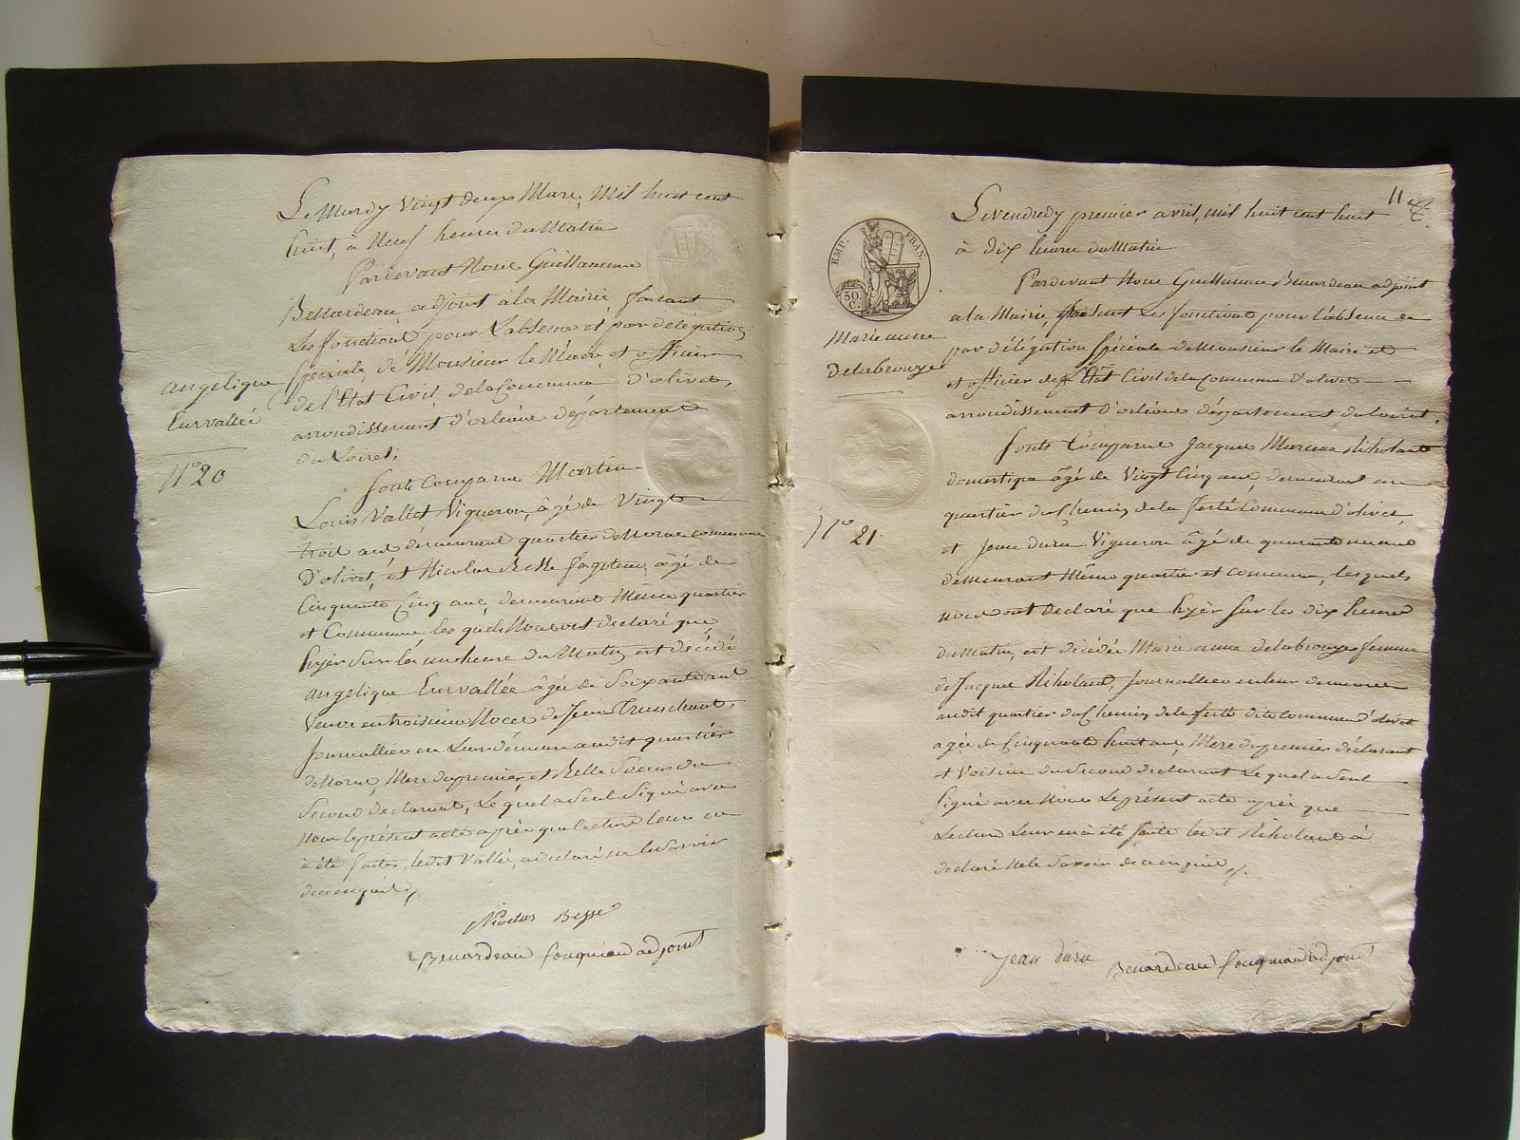 Le Mardy Vingt deux Mars, Mil huit cent
huit, à Neuf heures du Matin
Pardevant Nous Guillaume
Benardeau adjoint à la Mairie faisant
Les fonctions pour L'absence et par délégation
spéciale, de Monsieur le Maire et officier
de l'Etat Civil, de la Commune D'olivet,
arrondissement d'orléans département
du Loiret,
angelique
Eurvallée
N° 20
Sont Comparus Martin
Louis Vallet Vigneron, âgé de Vingt
trois ans demeurant quartier de Morne commune
D'olivet, et Nicolas Besse fagoteur, âgé de
Cinquante Cinq ans, demeurant Même quartier
et Commune, les quels Nous ont déclaré que
hyer sur les une heure du Matin, est décédée
angelique Eurvallée âgée de Soixante ans
Veuve en troisieme Noces de Jean Trinchant,
Journallier en Leur demeure audit quartier
de Morne, Mere du premier, et Belle Soeur du
Second déclarant, Le quel a Seul Signé avec
Nous le présent acte après que lecture leur en
à été faite, ledit Vallé, a déclaré ne le Savoir
de ce enquis,
Nicolas Besse
Benardeau fouqueau adjoint
11
Le vendredy premier avril, mil huit cent huit
à dix heures du Matin
EMP. FRAN.
50. C.
Pardevant Nous Guillaume Benardeau adjoint
a la Mairie, faisant Les fonctions pour l'absence et
par délégation Spéciale de Monsieur le Maire et
et officier de l'Etat Civil de la Commune d'olivet
arrondissement d'orléans département du Loiret.
Marie anne
Delabrouze
N° 21
Sont Comparus Jacques Marceau Niholant
domestique âgé de Vingt Cinq ans, demeurant au
quartier du Chemin de la ferté Commune d'olivet,
et Jean dusu Vigneron âgé de quarante un ans
demeurant Même quartier et comune, lesquels
nous ont declaré que hyèr sur les dix heures
du Matin, est décédée Marie anne delabrouze femme
de Jacques Niholant, Journallier en leur demeure
audit quartier du Chemin de la ferté dite commune d'olivet
agée de Cinquante huit ans, Mere du premier déclarant
et Voisine du Second declarant Le quel a Seul
Signé avec Nous Le présent acte après que
Lecture Leur en à été faite ledit Niholant à
declaré ne le Savoir de ce enquis,
Jean dusu
Benardeau fouqueau adjoint